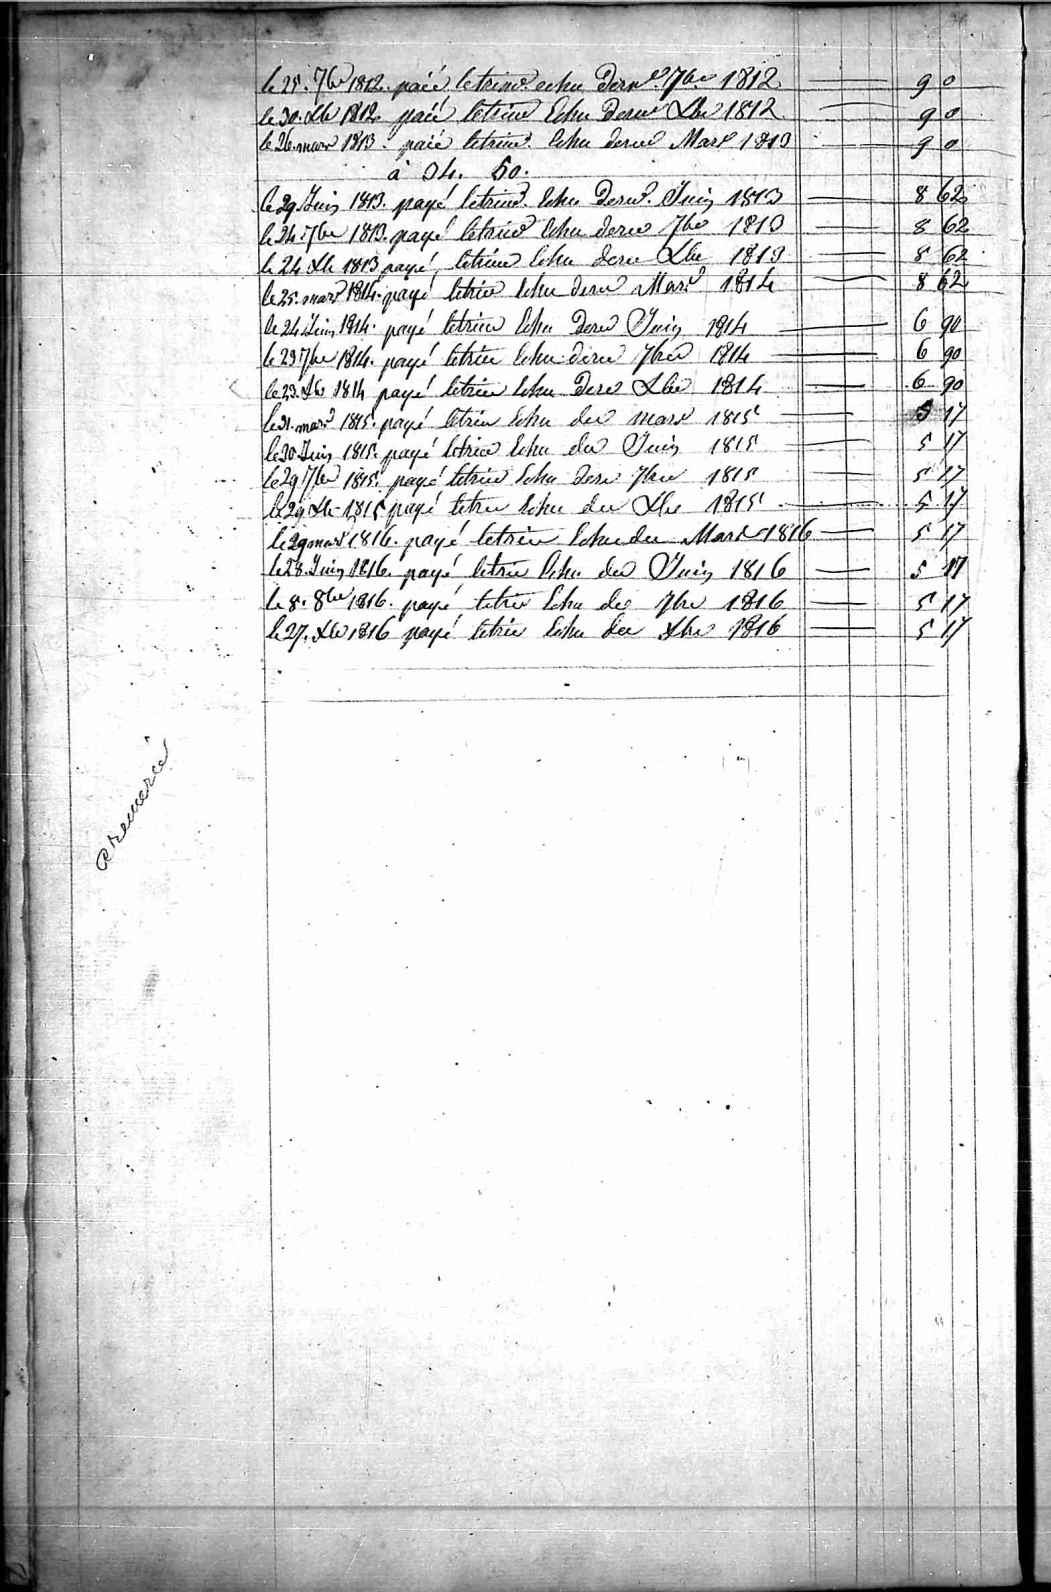 le 25. 7bre 1812. paié le trime. echu Dernr. 7bre 1812 9 0
le 30. Xbre 1812 paié le trime Echu Dernr Xbre 1812 9 0
le 26. mars 1813. paié le trime. Echu dernr Mars 1813 9 0
à 34. 50.
le 29 Juin 1813. payé le trime. Echu Dernr. Juin 1813 8 62
le 24. 7bre 1813. payé le trime Echu dernr 7bre 1813 8 62
le 24 Xbre 1813 payé le trime Echu dernr Xbre 1813 8 62
le 25. mars 1814. payé le trim Echu dernr Mars 1814 8 62
le 24 Juin 1814. payé le trim Echu Dernr Juin 1814 6 90
le 23 7bre 1814. payé le trim Echu dernr 7bre 1814 6 90
le 23. Xbre 1814 payé le trim Echu Dernr Xbre 1814 6 90
le 31. mars 1815. payé le trim Echu der mars 1815 5 17
le 30 Juin 1815. payé le trim Echu der Juin 1815 5 17
le 29 7bre 1815. payé le trim Echu dernr 7bre 1815 5 17
le 29 Xbre 1815 payé le trim Echu der Xbre 1815 5 17
le 29 mars 1816. payé le trim Echu der Mars 1816 5 17
le 28. Juin 1816. payé le trim Echu der Juin 1816 5 17
le 8. 8bre 1816. payé le trim Echu der 7bre 1816 5 17
le 27. Xbre 1816 payé le trim Echu der Xbre 1816 5 17
remercié